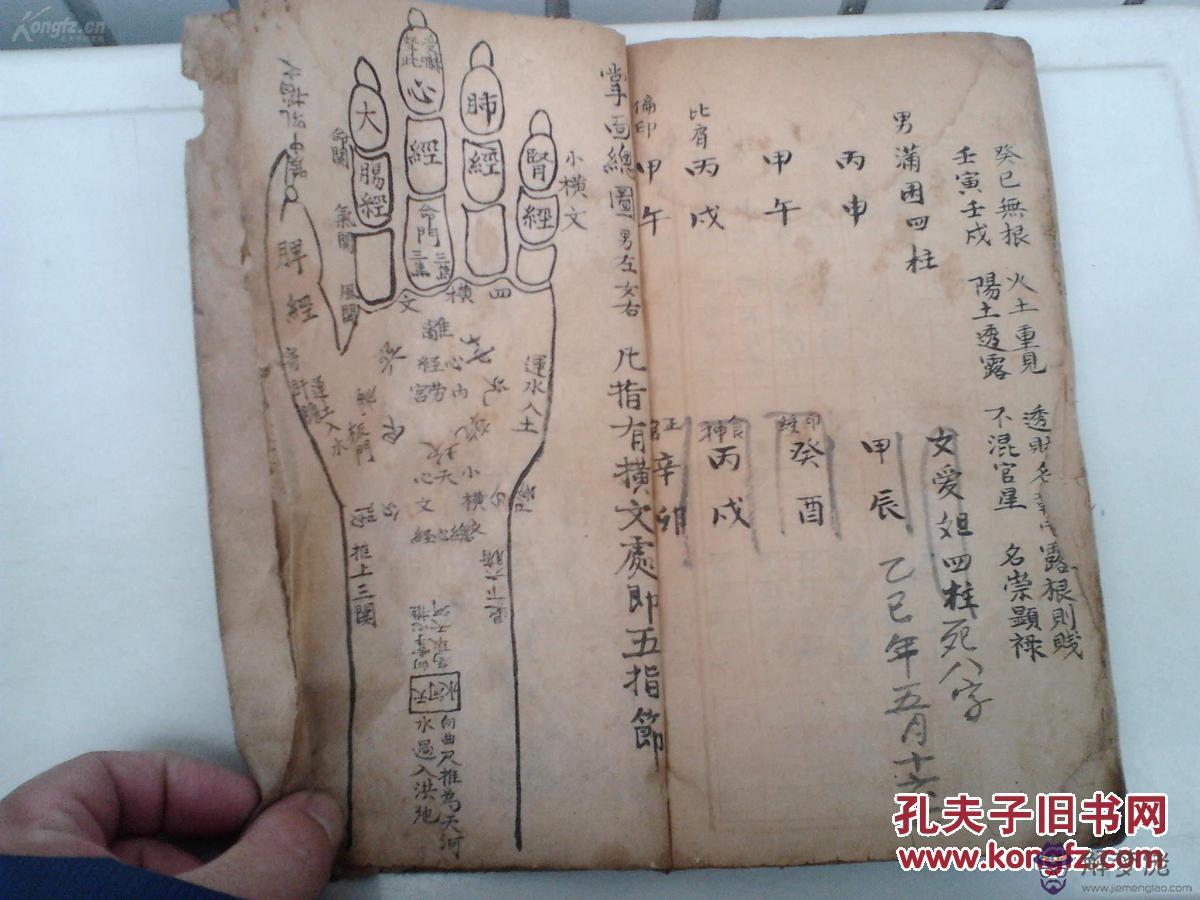 癸巳無根 火土重見 透財 露根則賤
壬寅壬戌 陽土透露 不混官星 名崇顯祿
男滿囤四柱
丙申
甲午
比肩
丙戌
偏印
甲午
女愛姐四柱死八字
乙巳年五月十六
甲辰
癸酉
食神
丙戌
正官
辛卯
掌面總圖 男左女右 凡指有橫文處即五指節
小橫文
腎經
肺經
心經
命門
三焦
三焦
大腸經
脾經
命關
氣關
風關
四橫文
離
心經
內勞宮
運水入土
運土入水
板門
天心
小橫文
推上三關
退下六腑
天河水
向曲尺推為天河
水過入洪池
Kongfz.cn
孔夫子旧书网
www.kongfz.com
解梦佬
www.jiemenglao.com